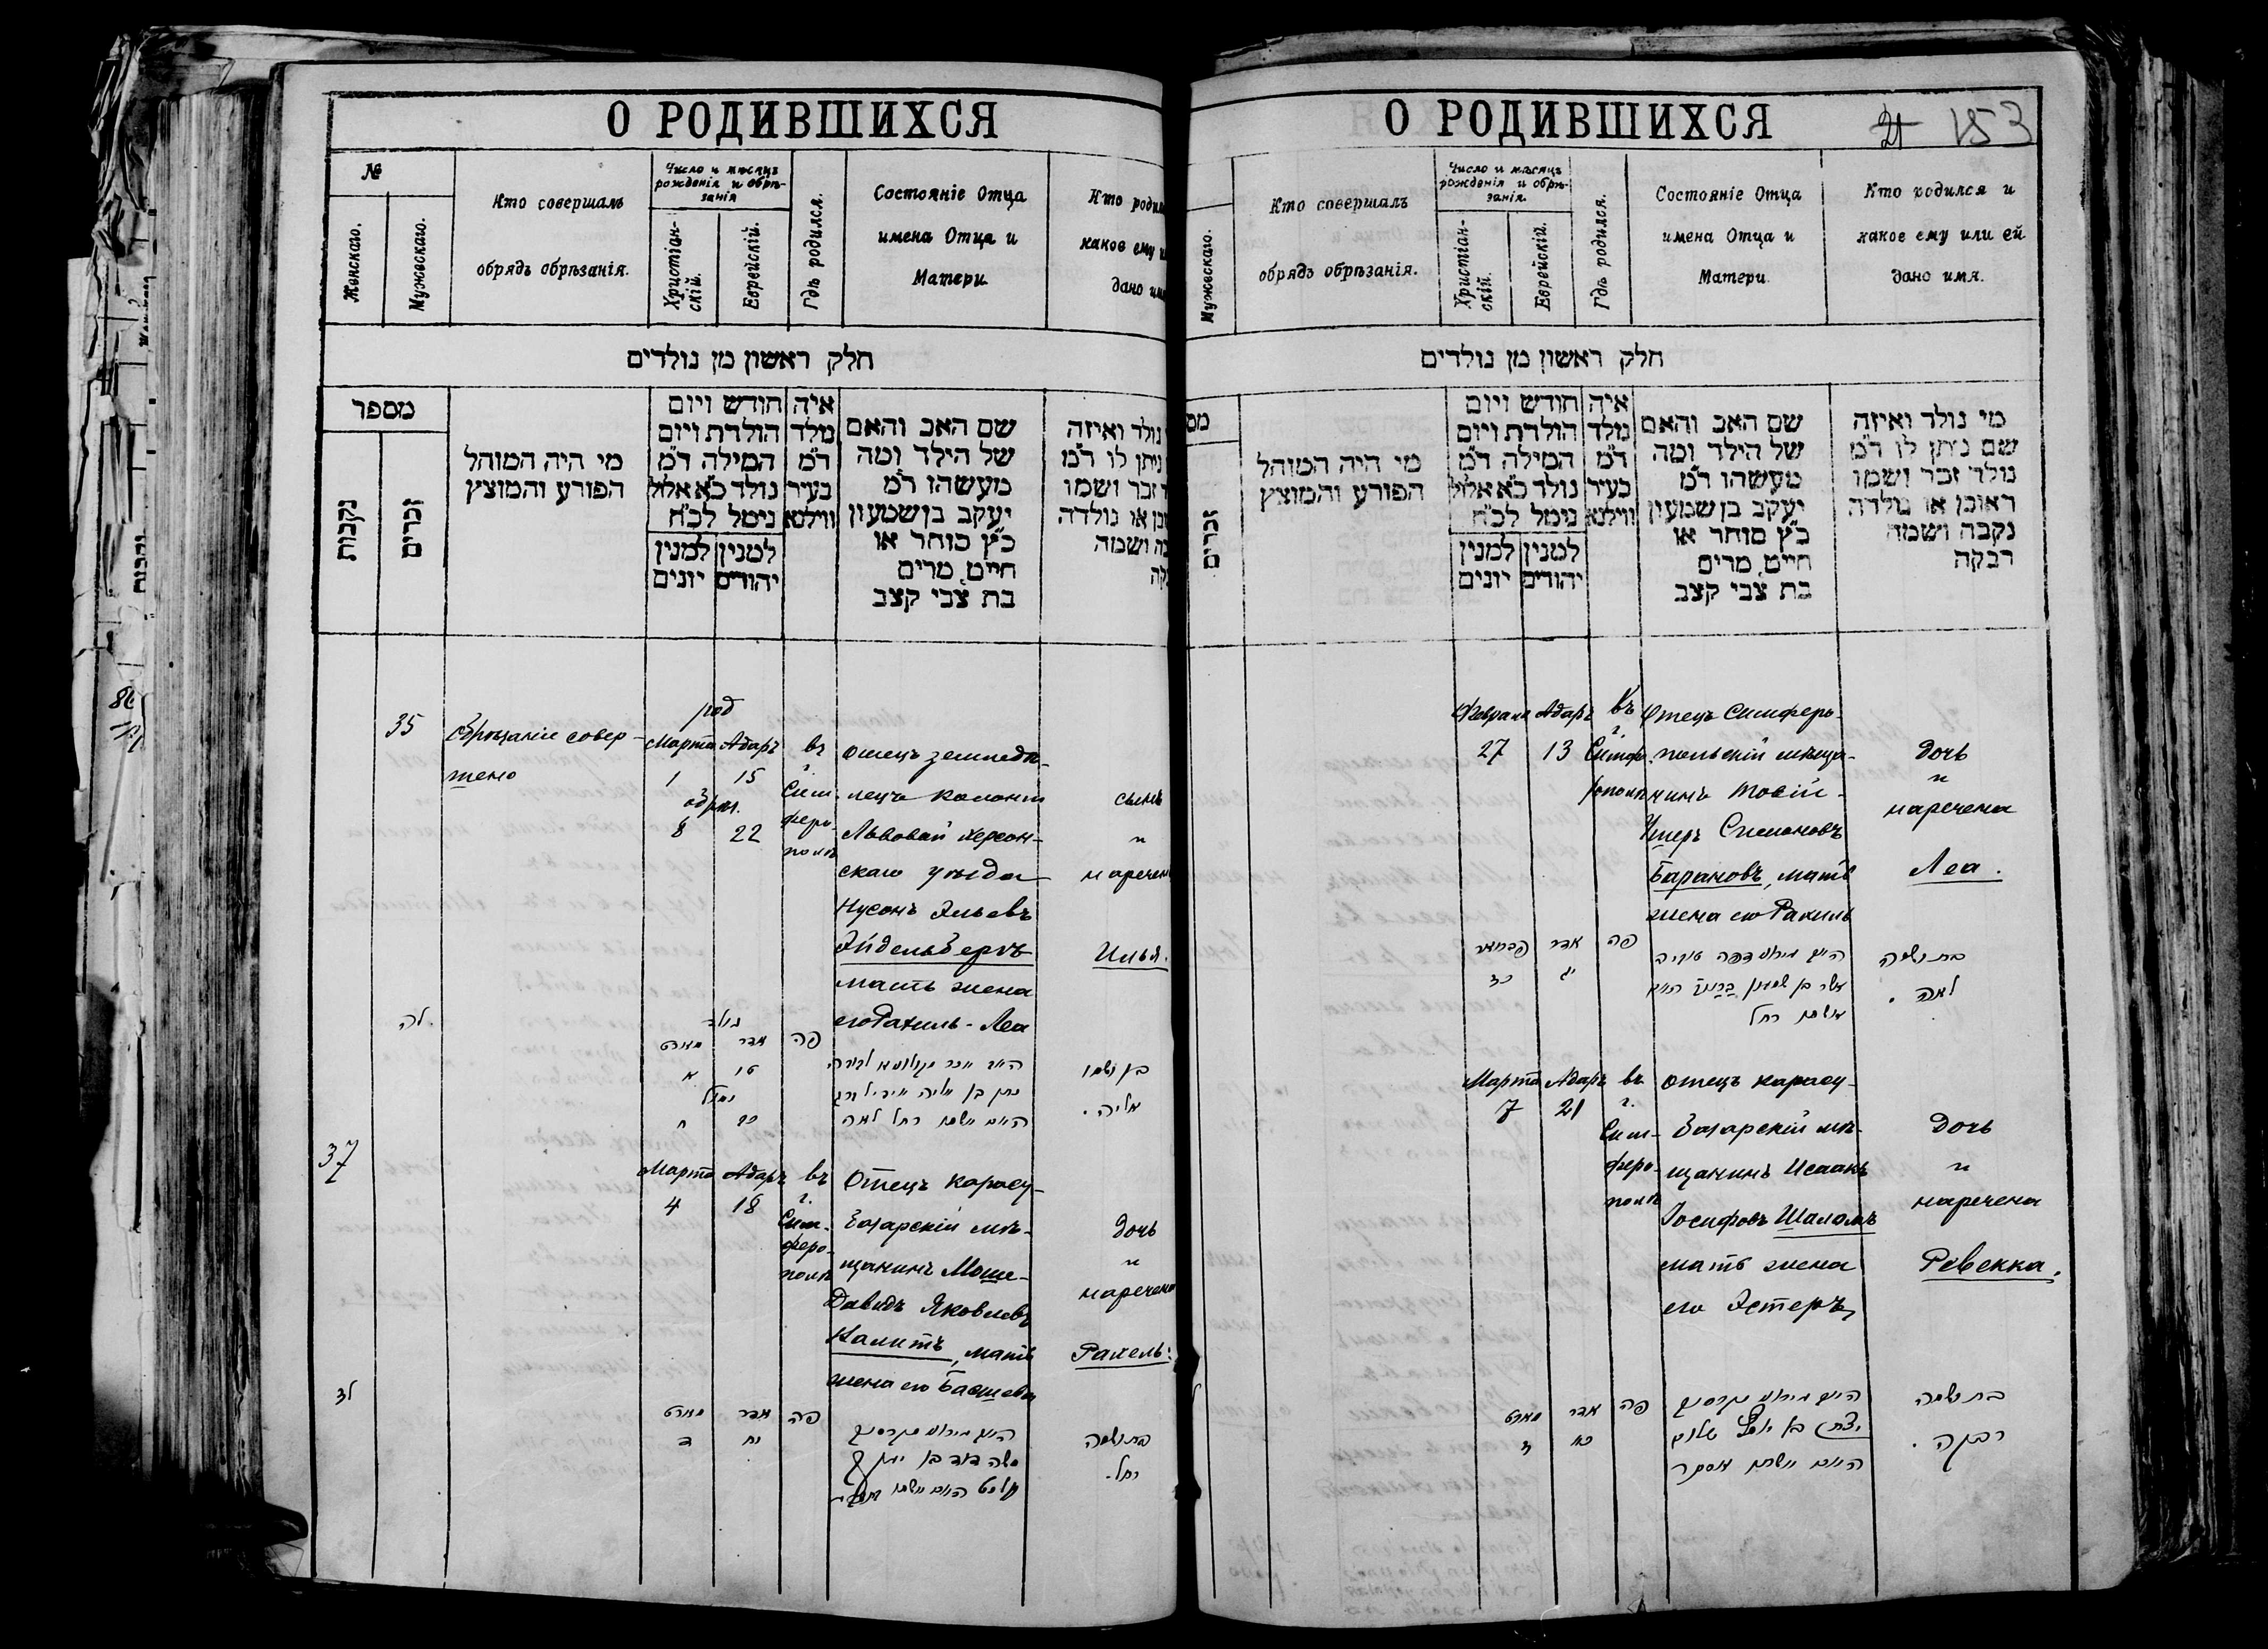 О РОДИВШИХСЯ
№
Женскаго.
Мужескаго.
Кто совершалъ
обрядъ обрѣзанія.
Число и мѣсяцъ
рожденія и обрѣ-
занія
Христіан-
скій.
Еврейскій.
Гдѣ родился.
Состояніе Отца
имена Отца и
Матери.
Кто роди
какое ему и
дано им
חלק ראשון מן נולדים
מספר
נקבות
זכרים
מי היה המוהל
הפורע והמוצץ
חודש ויום
הולדת ויום
המילה ד״מ
נולד כ״א אלול
נימל לכ״ח
למנין למנין
יהודים יונים
איה
נולד
ד״מ
בעיר
ווילנא
שם האב והאם
של הילד ומה
מעשהו ד״מ
יעקב בן שמעון
כ״ץ סוחר או
חייט, מרים
בת צבי קצב
נולד ואיזה
ניתן לו ד״מ
זכר ושמו
בן או נולדה
בה ושמה
קה
35
Обрѣзаніе совер-
шено
род
Марта Адаръ
1 15
обрѣз.
8 22
въ
г.
Сим-
феро-
полѣ
Отецъ земледѣ-
лецъ колоніи
Львовой Херсон-
скаго уѣзда
Нусонъ Эльевъ
Эйдельбергъ
мать жена
его Рахиль-Леа
сынъ
и
наречен
Илья.
לה
נולד
מארט אדר
א טו
נימול
ח כב
פה
נתן בן אליה
רחל לאה
בן ושמו
אליה.
37
Марта Адаръ
4 18
въ
г.
Сим-
феро-
полѣ
Отецъ карасу-
базарскій мѣ-
щанинъ Моше-
Давидъ Яковлевъ
Калитъ, мать
жена его Басшева
дочь
и
наречена
Рахель.
לז
מארט אדר
ד יח
פה
משה דוד בן יעקב
בת ושמה
רחל.
О РОДИВШИХСЯ
21 153
Мужескаго.
Кто совершалъ
обрядъ обрѣзанія.
Число и мѣсяцъ
рожденія и обрѣ-
занія.
Христіан-
скій.
Еврейскій.
Гдѣ родился.
Состояніе Отца
имена Отца и
Матери.
Кто родился и
какое ему или ей
дано имя.
חלק ראשון מן נולדים
מס
זכרים
מי היה המוהל
הפורע והמוצץ
חודש ויום
הולדת ויום
המילה ד״מ
נולד כ״א אלול
נימל לכ״ח
למנין למנין
יהודים יונים
איה
נולד
ד״מ
בעיר
ווילנא
שם האב והאם
של הילד ומה
מעשהו ד״מ
יעקב בן שמעון
כ״ץ סוחר או
חייט, מרים
בת צבי קצב
מי נולד ואיזה
שם ניתן לו ד״מ
נולד זכר ושמו
ראובן או נולדה
נקבה ושמה
רבקה
Февраля Адаръ
27 13
въ
г.
Симфе-
рополѣ
Отецъ Симферо-
польскій мѣща-
нинъ Товій-
Ушеръ Симоновъ
Барановъ, мать
жена его Рахиль
дочь
и
наречена
Леа.
פברואר אדר
כז יג
פה
אשר בן שמעון
רחל
בת ושמה
לאה.
Марта Адаръ
7 21
въ
г.
Сим-
феро-
полѣ
Отецъ карасу-
базарскій мѣ-
щанинъ Исаакъ
Іосифовъ Шаломъ
мать жена
его Эстеръ
дочь
и
наречена
Ревекка.
מארט אדר
ז כא
פה
יצחק בן יוסף שלום
אסתר
בת ושמה
רבקה.